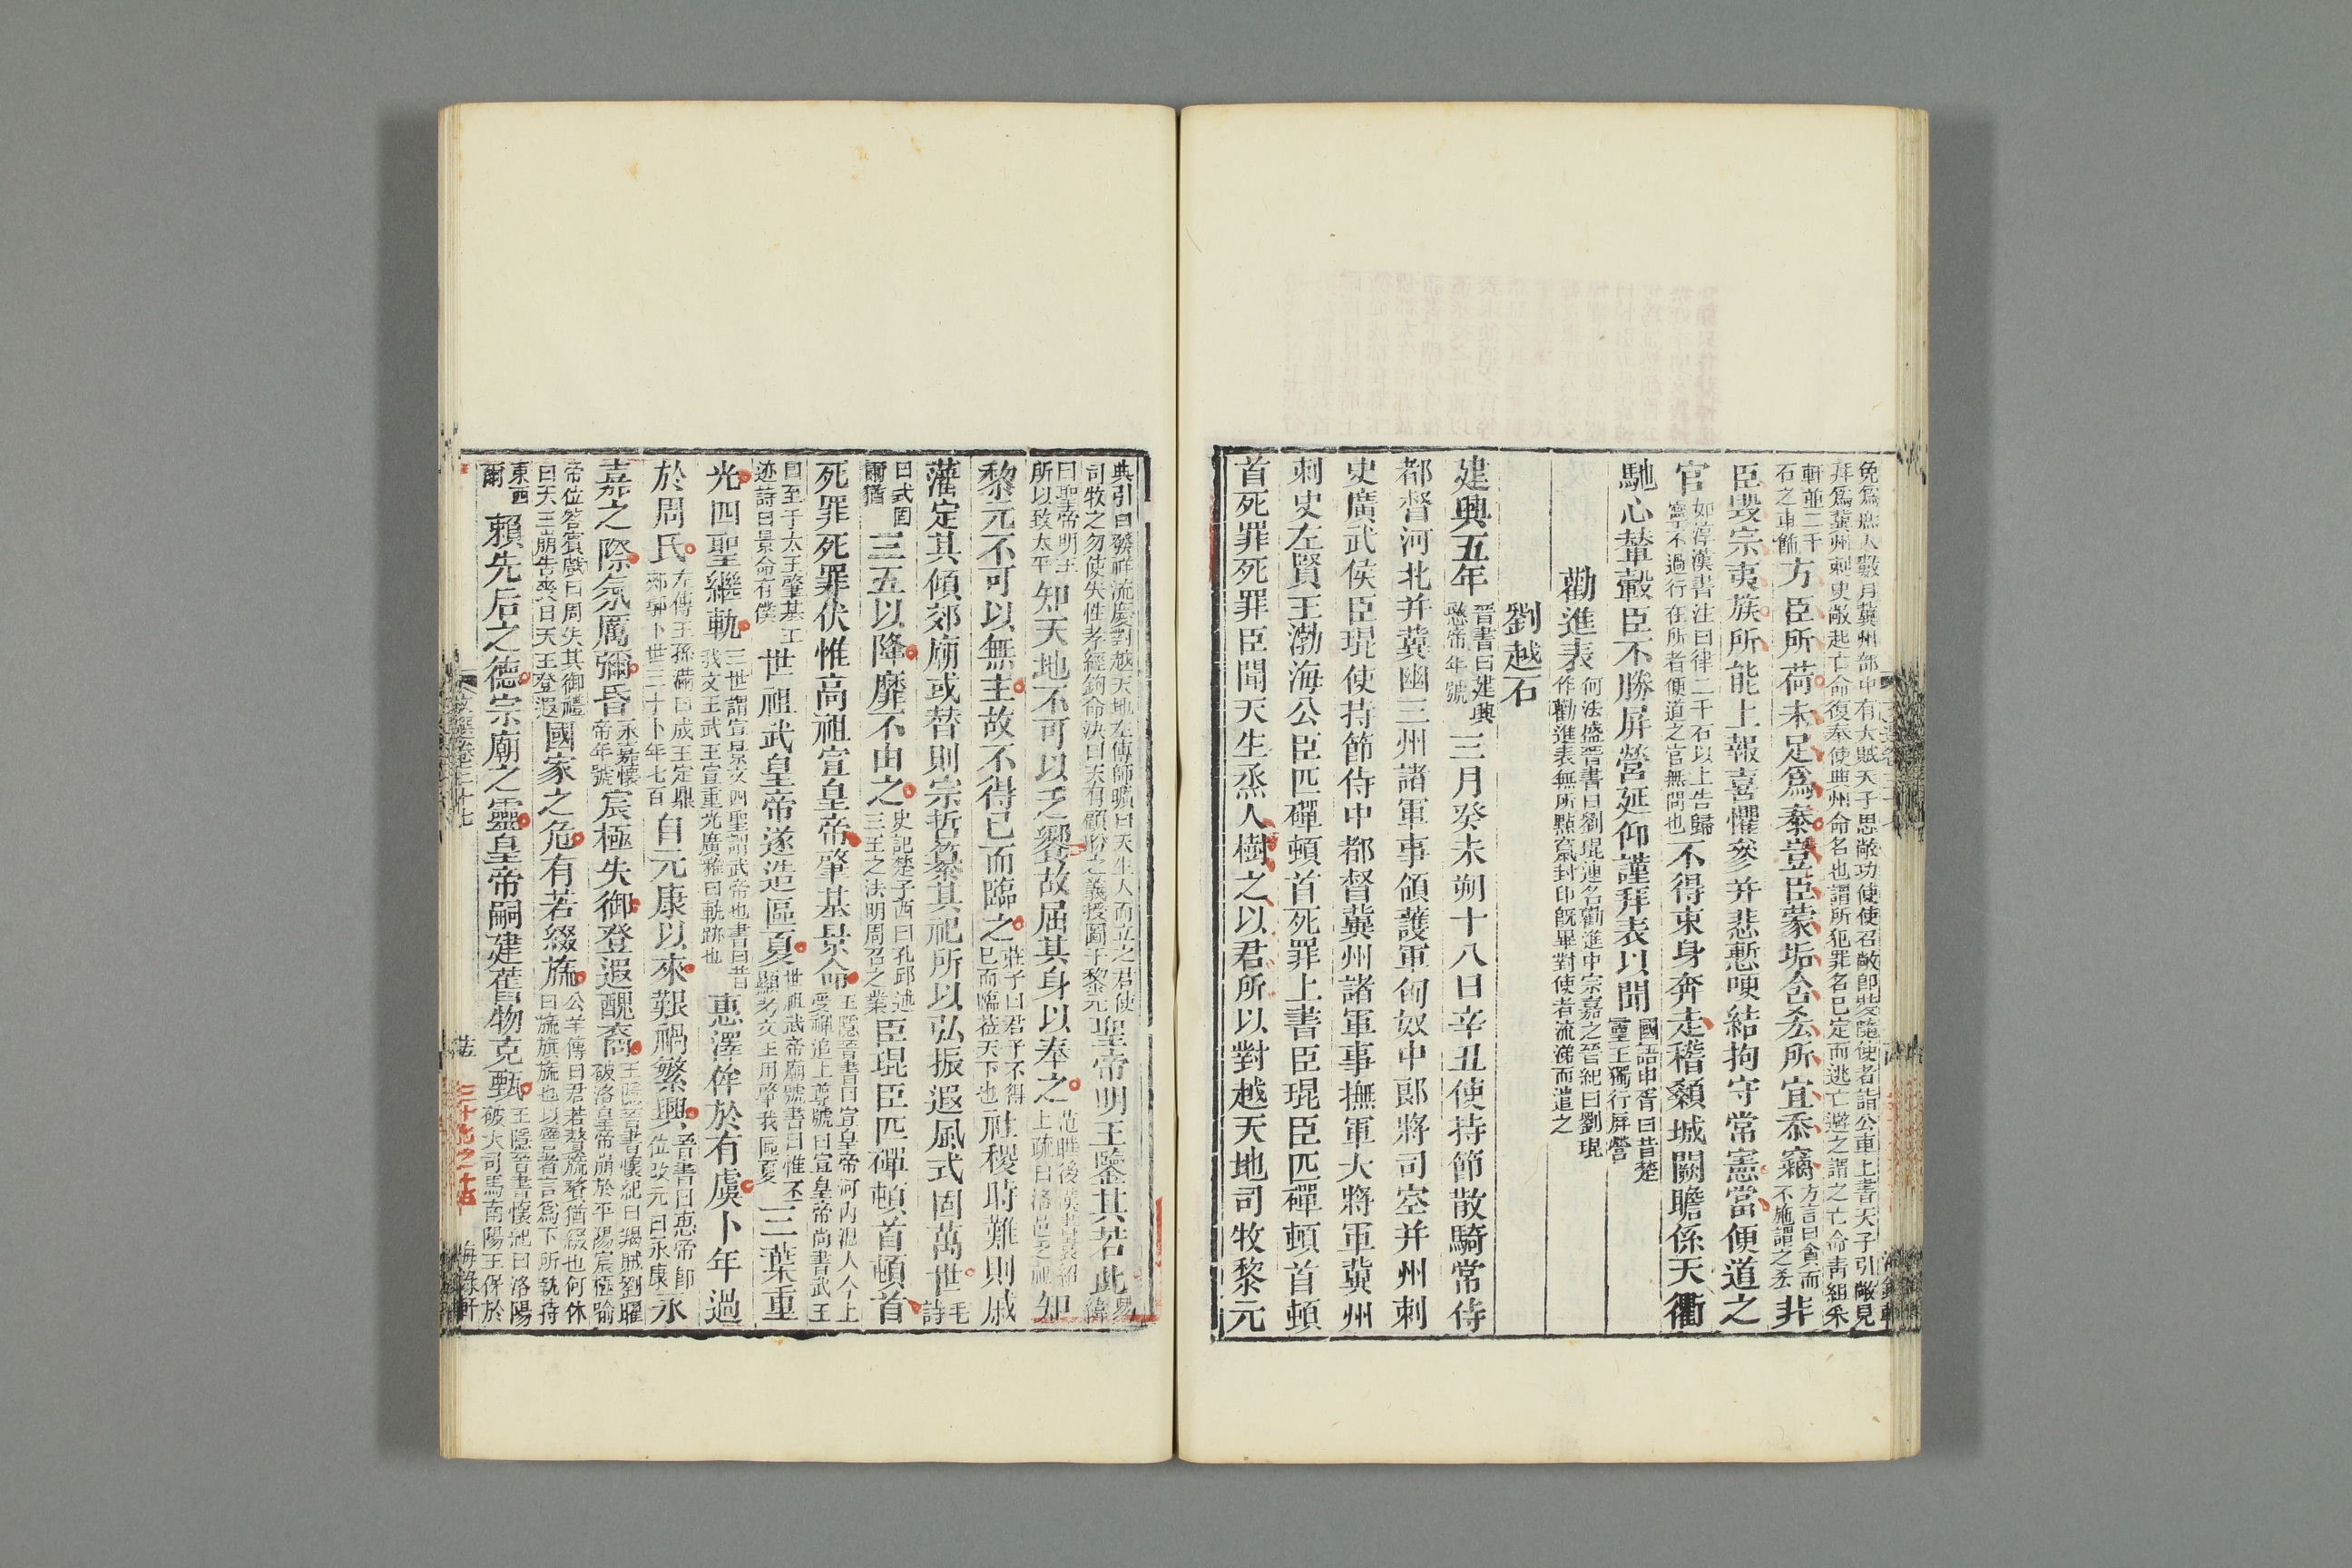 免爲庶人數月冀州部中有大賊天子思敞功使使召敞卽裝隨使者詣公車上書天子引敞見
拜爲冀州刺史敞起亡命復奉使典州命名也謂所犯罪名已定而逃亡避之謂之亡命靑組朱
軒並二千
石之車飾
方臣所荷未足爲泰豈臣蒙垢含吝所宜忝竊
方言曰貪而
不施謂之吝
非
臣毀宗夷族所能上報喜懼參幷悲慙哽結拘守常憲當便道之
官
如淳漢書注曰律二千石以上告歸
寧不過行在所者便道之官無問也
不得束身奔走稽顙城闕瞻係天衢
馳心輦轂臣不勝屏營延仰謹拜表以聞
國語申胥曰昔楚
靈王獨行屏營
勸進表
何法盛晉書曰劉琨連名勸進中宗嘉之晉紀曰劉琨
作勸進表無所點竄封印旣畢對使者流涕而遣之
劉越石
建興五年
晉書曰建興
愍帝年號
三月癸未朔十八日辛丑使持節散騎常侍
都督河北并冀幽三州諸軍事領護軍匈奴中郎將司空并州刺
史廣武侯臣琨使持節侍中都督冀州諸軍事撫軍大將軍冀州
刺史左賢王渤海公臣匹磾頓首死罪上書臣琨臣匹磾頓首頓
首死罪死罪臣聞天生蒸人樹之以君所以對越天地司牧黎元
典引曰發祥流慶對越天地左傳師曠曰天生人而立之君使
司牧之勿使失性孝經鉤命決曰天有顧眄之義授圖于黎元
聖帝明王鑒其若此
易
緯
曰聖帝明王
所以致太平
知天地不可以乏饗故屈其身以奉之
范曄後漢書袁紹
上疏曰洛邑乏祀
知
黎元不可以無主故不得已而臨之
莊子曰君子不得
已而臨莅天下也
社稷時難則戚
藩定其傾郊廟或替則宗哲纂其祀所以弘振遐風式固萬世
毛
詩
曰式固
爾猶
三五以降靡不由之
史記楚子西曰孔邱述
三王之法明周召之業
臣琨臣匹磾頓首頓首
死罪死罪伏惟高祖宣皇帝肇基景命
王隱晉書曰宣皇帝河內溫人今上
受禪追上尊號曰宣皇帝尚書武王
曰至于太王肇基王
迹詩曰景命有僕
世祖武皇帝遂造區夏
世祖武帝廟號書曰惟丕
顯考文王用肇我區夏
三葉重
光四聖繼軌
三世謂宣景文四聖謂武帝也書曰昔
我文王武王宣重光廣雅曰軌跡也
惠澤侔於有虞卜年過
於周氏
左傳王孫滿曰成王定鼎
郟鄏卜世三十卜年七百
自元康以來艱禍繁興
晉書曰惠帝卽
位改元曰永康
永
嘉之際氛厲彌昏
永嘉懷
帝年號
宸極失御登遐醜裔
王隱晉書懷紀曰羯賊劉曜
破洛皇帝崩於平陽宸極喻
帝位答賓戲曰周失其御禮
曰天王崩告喪曰天王登遐
國家之危有若綴旒
公羊傳曰君若贅旒贅猶綴也何休
曰旒旗旒也以譬者言爲下所執持
東西
爾
賴先后之德宗廟之靈皇帝嗣建舊物克甄
王隱晉書懷紀曰洛陽
破大司馬南陽王保於
文選卷三十七
海錄軒